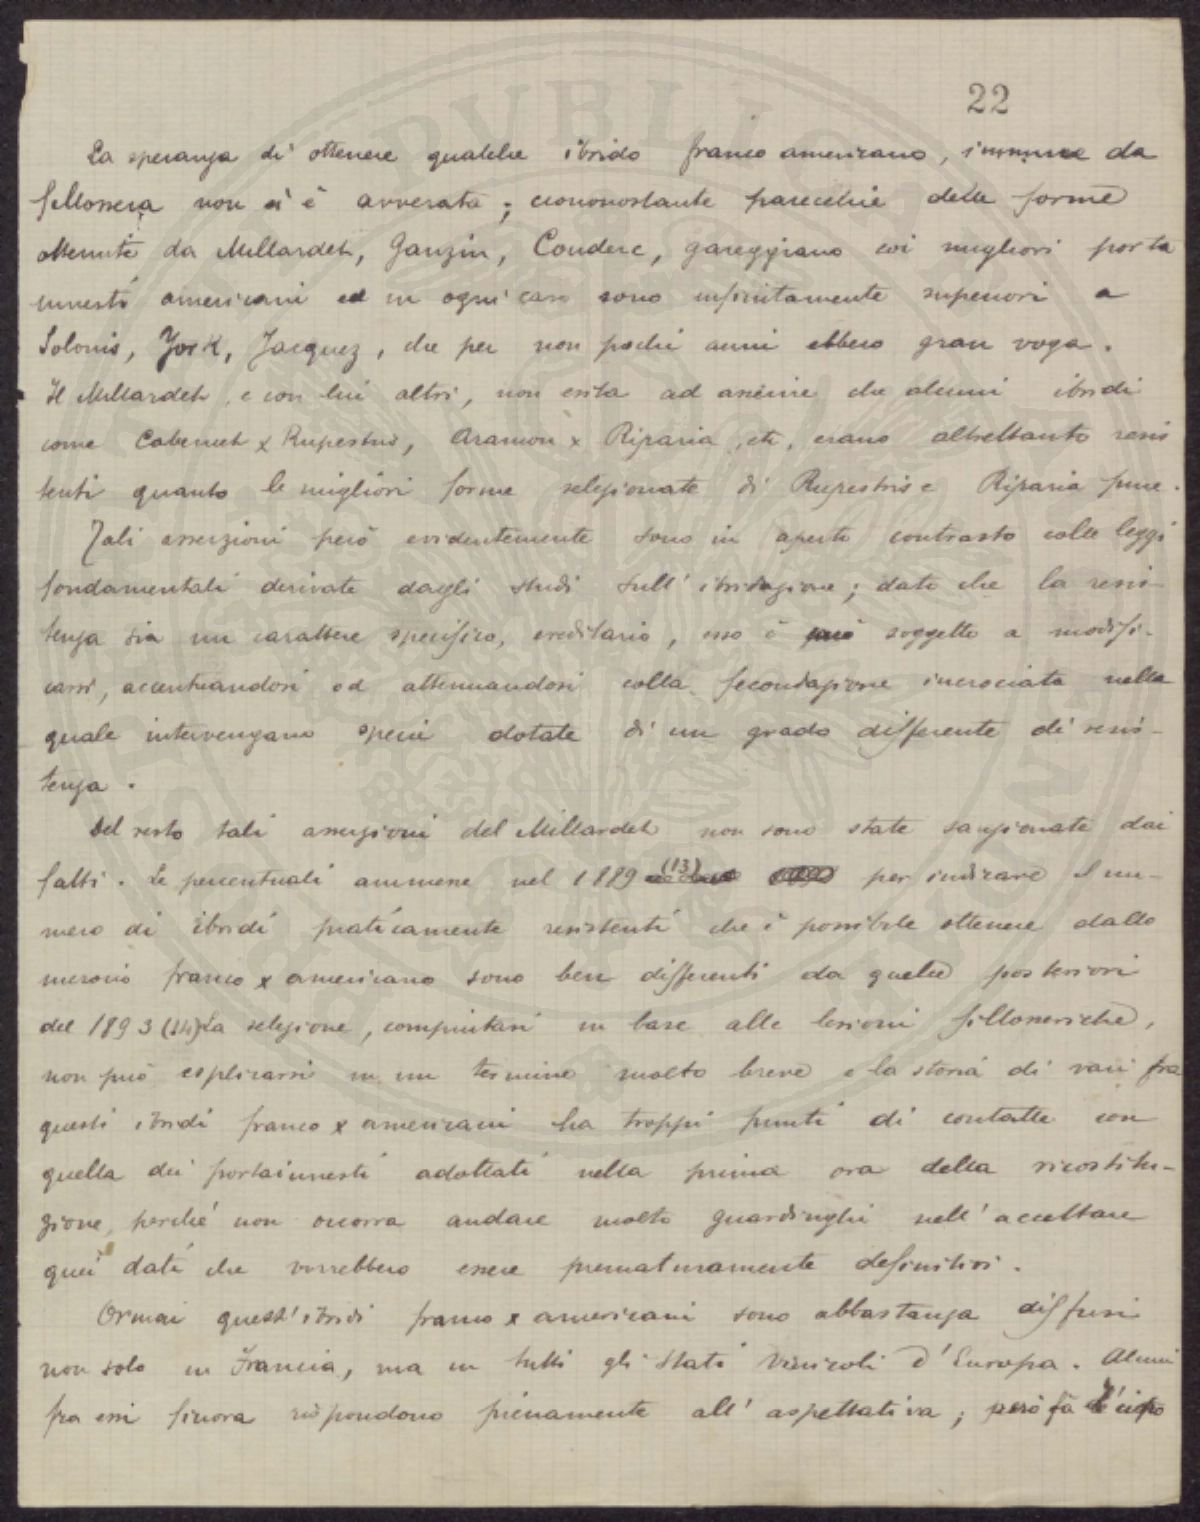 22
La speranza di ottenere qualche ibrido franco americano, immune da
fillossera non si è avverata; ciononostante parecchie delle forme
ottenute da Millardet, Ganzin, Couderc, gareggiano coi migliori porta
innesti americani ed in ogni caso sono infinitamente superiori a
Solonis, York, Jacquez, che per non pochi anni ebbero gran voga.
Il Millardet, e con lui altri, non esita ad asserire che alcuni ibridi
come Cabernet x Rupestris, Aramon x Riparia, etc, erano altrettanto resis
tenti quanto le migliori forme selezionate di Rupestris e Riparia pure.
Tali asserzioni però evidentemente sono in aperto contrasto colle leggi
fondamentali derivate dagli studi sull'ibridazione; dato che la resis-
tenza sia un carattere specifico, ereditario, esso è soggetto a modifi-
carsi, accentuandosi od attenuandosi colla fecondazione incrociata nella
quale intervengano specii dotate di un grado differente di resis-
tenza.
Del resto tali asserzioni del Millardet non sono state sanzionate dai
fatti. Le percentuali ammesse nel 1889 (13) per indicare il nu-
mero di ibridi praticamente resistenti che è possibile ottenere dallo
incrocio franco x americano sono ben differenti da quelle posteriori
del 1893 (14) La selezione, compiutasi in base alle lesioni fillosseriche,
non può esplicarsi in un termine molto breve e la storia di vari fra
questi ibridi franco x americani ha troppi punti di contatto con
quella dei portainnesti adottati nella prima ora della ricostitu-
zione, perchè non occorra andare molto guardinghi nell'accettare
quei dati che vorrebbero essere prematuramente definitivi.
Ormai quest'ibridi franco x americani sono abbastanza diffusi
non solo in Francia, ma in tutti gli Stati Vinicoli d'Europa. Alcuni
fra essi finora rispondono pienamente all'aspettativa; però